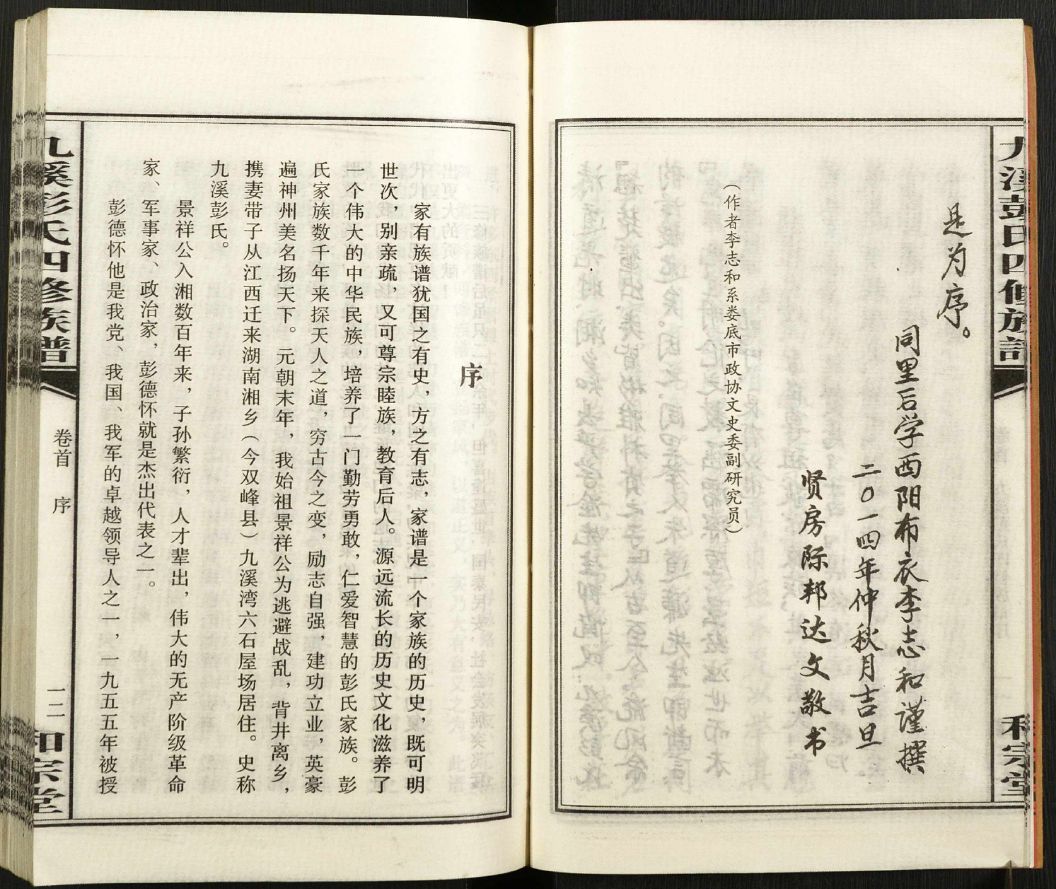 九溪彭氏四修族谱
是为序。
同里后学酉阳布衣李志和谨撰
二〇一四年仲秋月吉旦
贤房际邦达文敬书
（作者李志和系娄底市政协文史委副研究员）
和宗堂
序
家有族谱犹国之有史，方之有志，家谱是一个家族的历史，既可明
世次，别亲疏，又可尊宗睦族，教育后人。源远流长的历史文化滋养了
一个伟大的中华民族，培养了一门勤劳勇敢，仁爱智慧的彭氏家族。彭
氏家族数千年来探天人之道，穷古今之变，励志自强，建功立业，英豪
遍神州美名扬天下。元朝末年，我始祖景祥公为逃避战乱，背井离乡，
携妻带子从江西迁来湖南湘乡（今双峰县）九溪湾六石屋场居住。史称
九溪彭氏。
景祥公入湘数百年来，子孙繁衍，人才辈出，伟大的无产阶级革命
家、军事家、政治家，彭德怀就是杰出代表之一。
彭德怀他是我党、我国、我军的卓越领导人之一，一九五五年被授
九溪彭氏四修族谱
卷首
序
一二
和宗堂